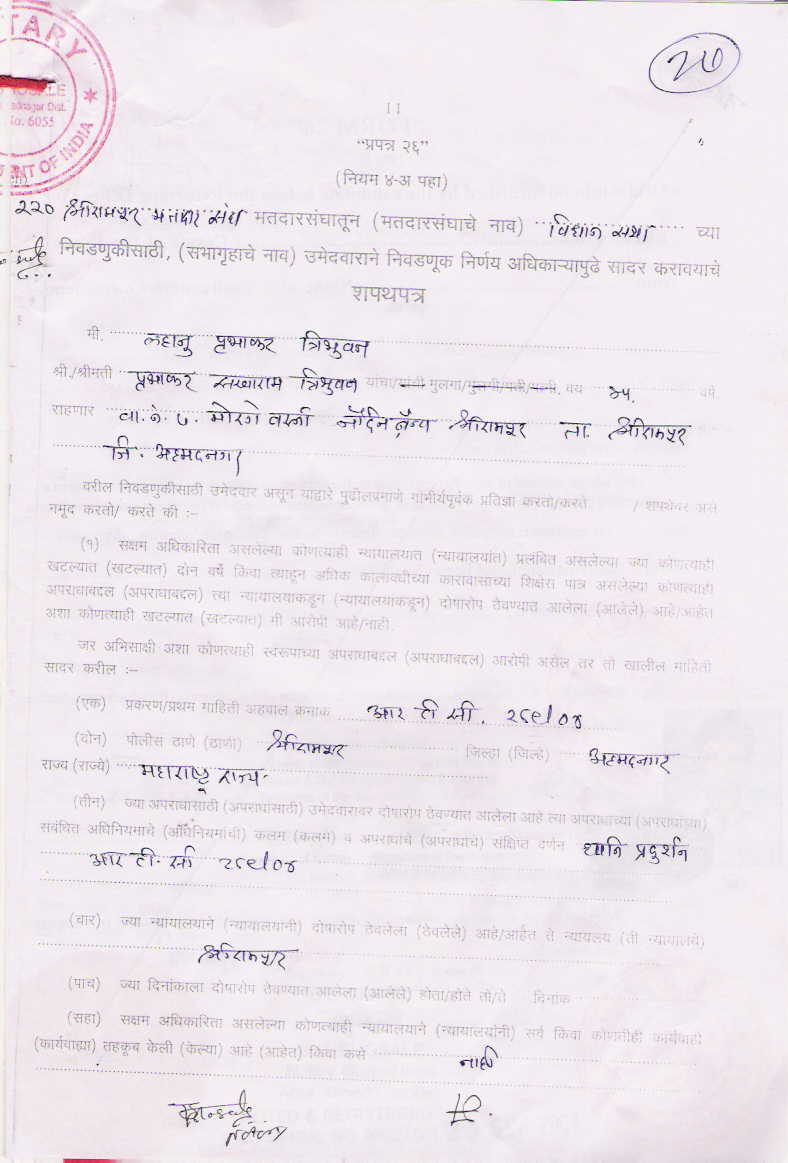 TARY
LE
adnagar Dist.
No. 6055
NT OF INDIA
20
11
“प्रपत्र २६”
(नियम ४-अ पहा)
२२० श्रीरामपूर मतदार संघ मतदारसंघातून (मतदारसंघाचे नाव) विधान सभा च्या
निवडणुकीसाठी, (सभागृहाचे नाव) उमेदवाराने निवडणूक निर्णय अधिकाऱ्यापुढे सादर करावयाचे
शपथपत्र
मी. लहानु प्रभाकर त्रिभुवन
श्री./श्रीमती प्रभाकर सखाराम त्रिभुवन यांचा/यांची मुलगा/मुलगी/पती/पत्नी, वय ४५. वर्षे
राहणार वा. नं. ७. मोरगे वस्ती श्रीरामपूर ता. श्रीरामपूर
जि. अहमदनगर
वरील निवडणुकीसाठी उमेदवार असून याद्वारे पुढीलप्रमाणे गांभीर्यपूर्वक प्रतिज्ञा करतो/करते / शपथेवर असे
नमूद करतो/ करते की :–
(१) सक्षम अधिकारिता असलेल्या कोणत्याही न्यायालयात (न्यायालयांत) प्रलंबित असलेल्या ज्या कोणत्याही
खटल्यात (खटल्यात) दोन वर्षे किंवा त्याहून अधिक कालावधीच्या कारावासाच्या शिक्षेस पात्र असलेल्या कोणत्याही
अपराधाबद्दल (अपराधाबद्दल) त्या न्यायालयाकडून (न्यायालयांकडून) दोषारोप ठेवण्यात आलेला (आलेले) आहे/आहेत
अशा कोणत्याही खटल्यात (खटल्यात) मी आरोपी आहे/नाही.
जर अभिसाक्षी अशा कोणत्याही स्वरूपाच्या अपराधाबद्दल (अपराधाबद्दल) आरोपी असेल तर तो खालील माहिती
सादर करील :–
(एक) प्रकरण/प्रथम माहिती अहवाल क्रमांक आर टी सी.
(दोन) पोलीस ठाणे (ठाणी) श्रीरामपूर जिल्हा (जिल्हे) अहमदनगर
राज्य (राज्ये) महाराष्ट्र राज्य
(तीन) ज्या अपराधासाठी (अपराधांसाठी) उमेदवारावर दोषारोप ठेवण्यात आलेला आहे त्या अपराधाच्या (अपराधांच्या)
संबंधित अधिनियमाचे (अधिनियमांची) कलम (कलमे) व अपराधाचे (अपराधांचे) संक्षिप्त वर्णन ध्वनि प्रदुर्शन
आर टी. सी
(चार) ज्या न्यायालयाने (न्यायालयांनी) दोषारोप ठेवलेला (ठेवलेले) आहे/आहेत ते न्यायलय (ती न्यायालये)
श्रीरामपूर
(पाच) ज्या दिनांकाला दोषारोप ठेवण्यात आलेला (आलेले) होता/होते तो/ते दिनांक
(सहा) सक्षम अधिकारिता असलेल्या कोणत्याही न्यायालयाने (न्यायालयांनी) सर्व किंवा कोणतीही कार्यवाही
(कार्यवाह्या) तहकूब केली (केल्या) आहे (आहेत) किंवा कसे नाही
Notary